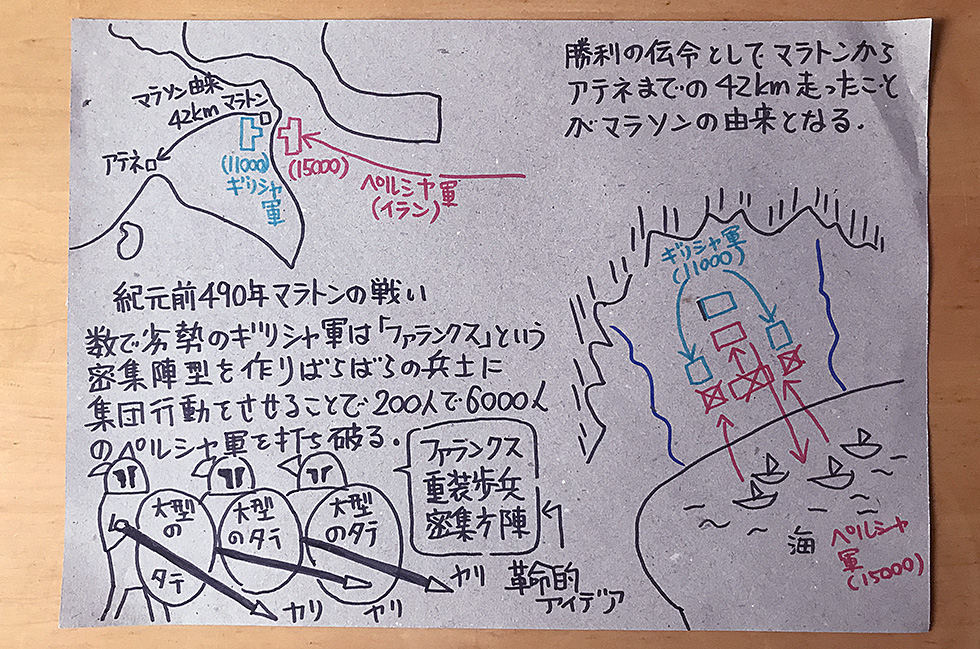 勝利の伝令としてマラトンから
アテネまでの42km走ったこと
がマラソンの由来となる.
マラソン由来
42km マラトン
アテネ
(11000)
ギリシャ
軍
(15000)
ペルシャ軍
(イラン)
紀元前490年マラトンの戦い
数で劣勢のギリシャ軍は「ファランクス」という
密集陣型を作りばらばらの兵士に
集団行動をさせることで200人で6000人
のペルシャ軍を打ち破る.
ギリシャ軍
(11000)
海
ペルシャ
軍
(15000)
ファランクス
重装歩兵
密集方陣
革命的
アイデア
大型
の
タテ
大型
のタテ
大型
のタテ
ヤリ
ヤリ
ヤリ